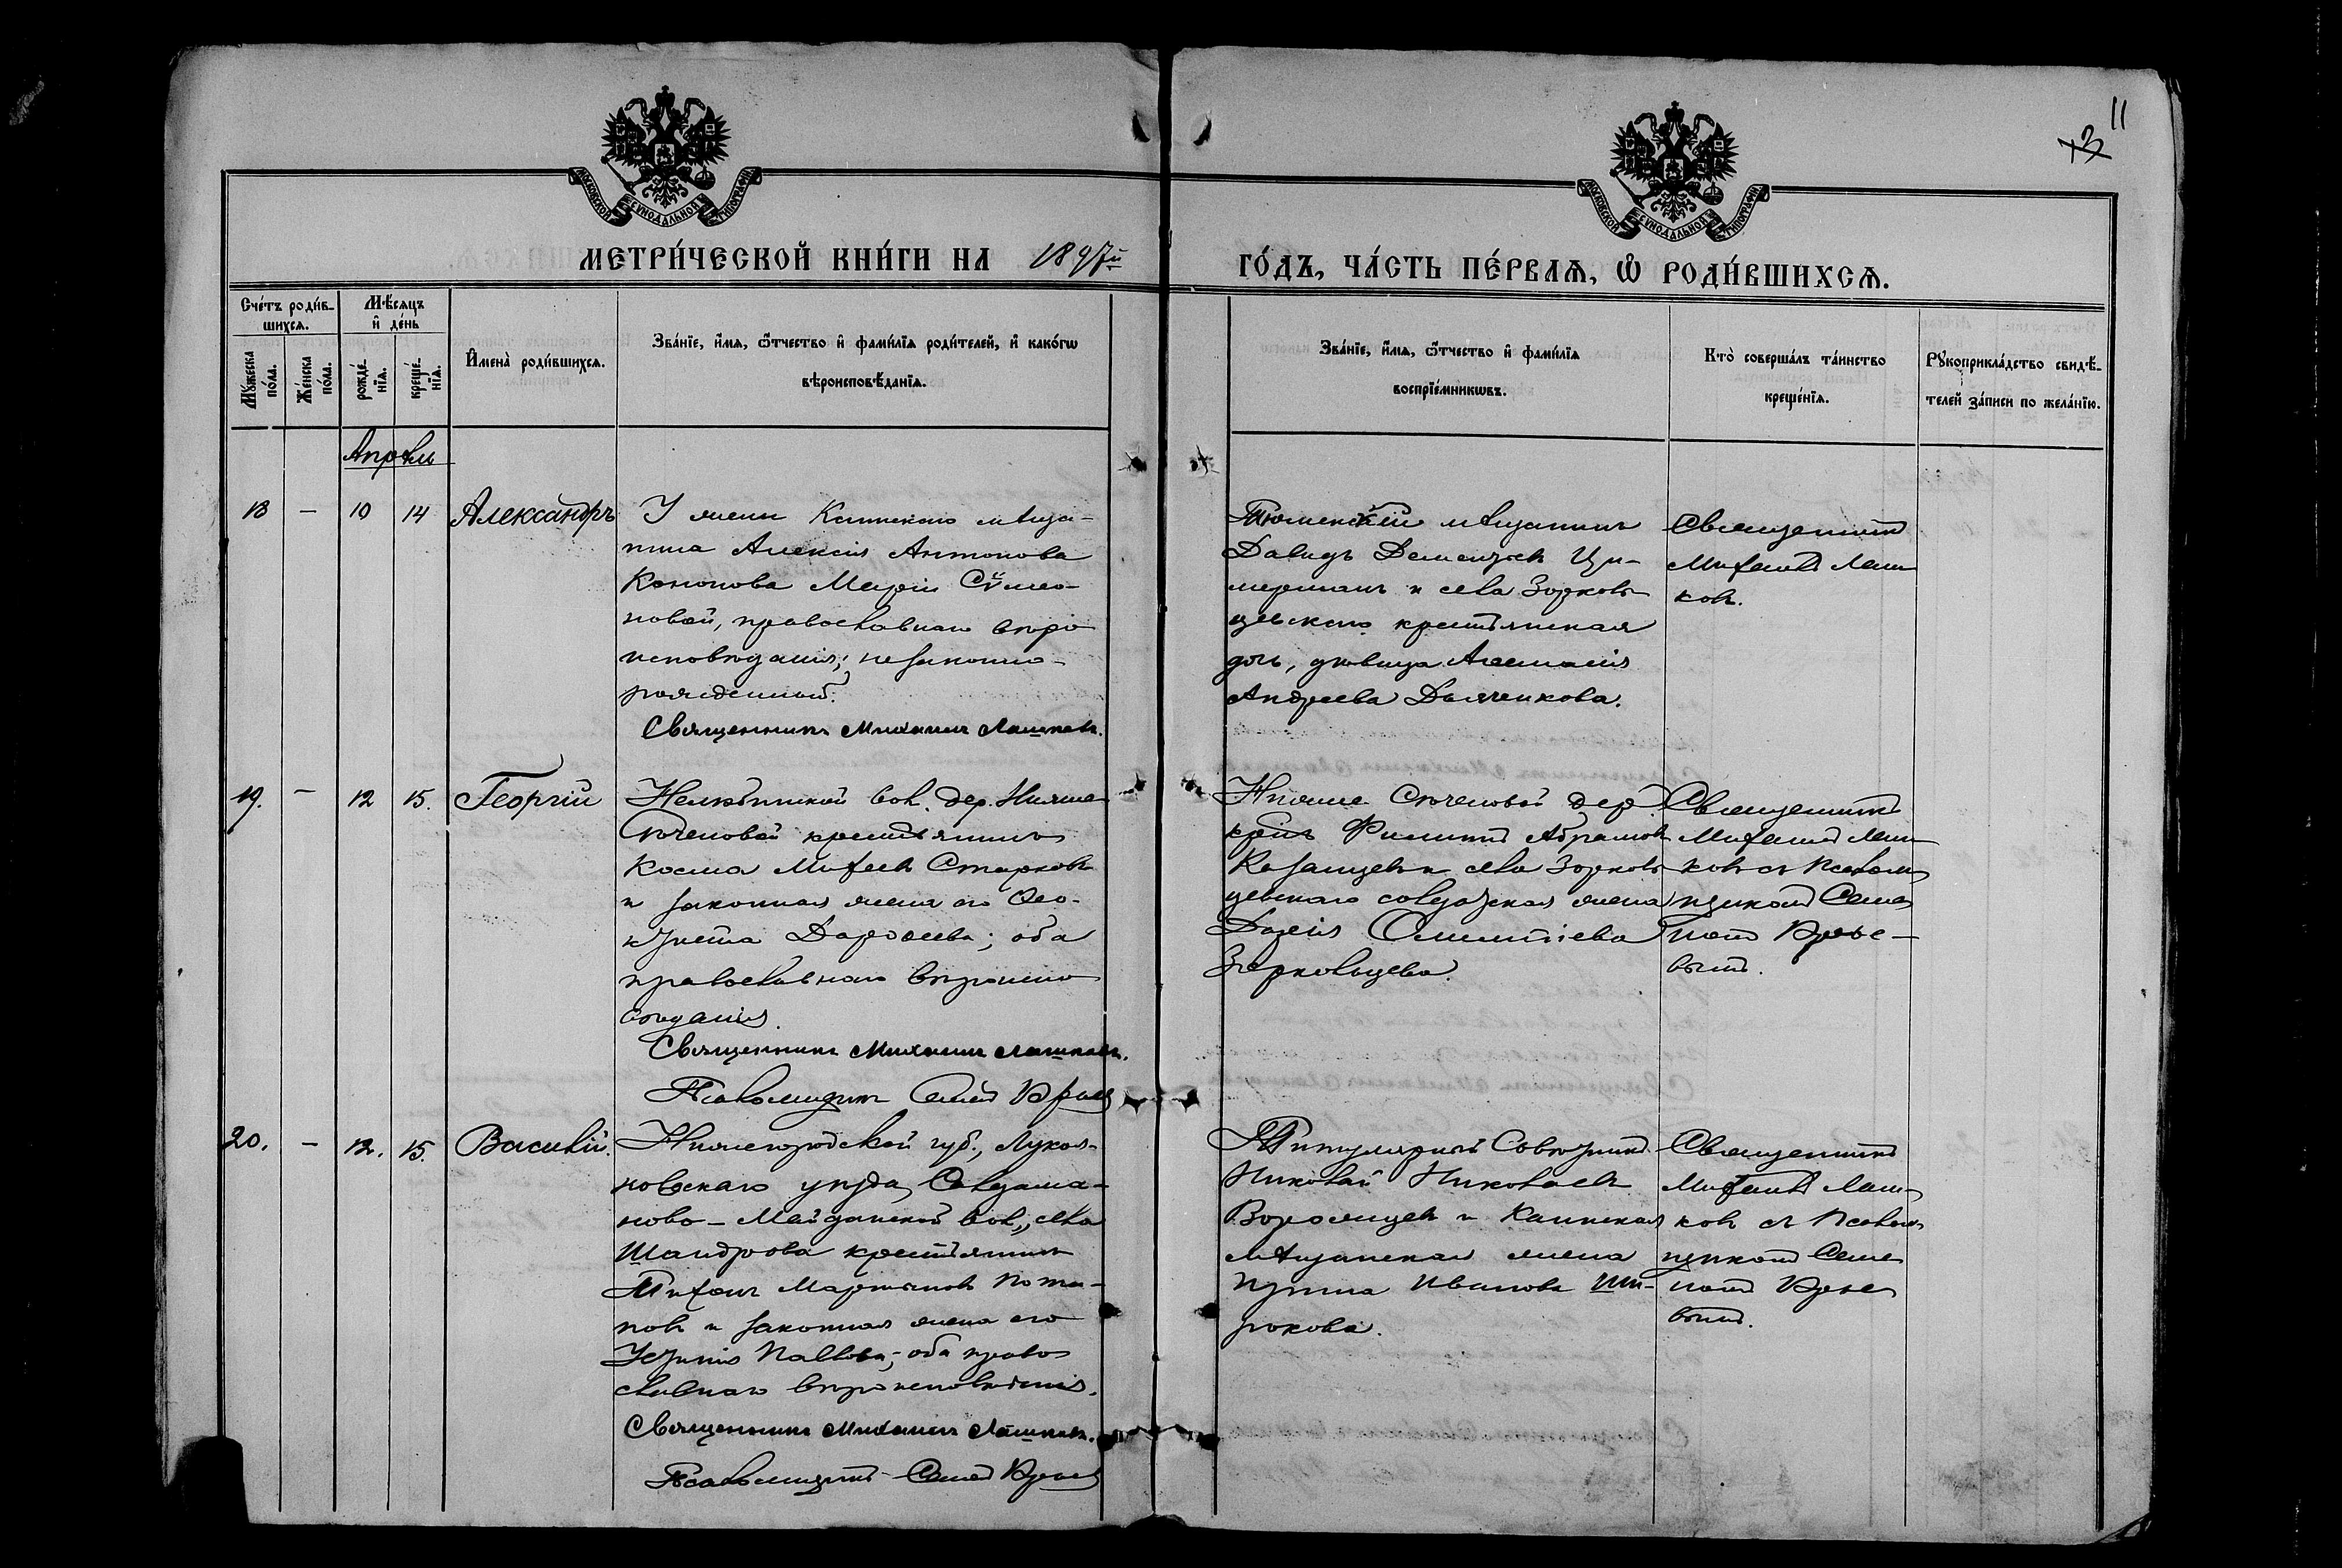 11
13
МОСКОВСКОЙ СѴНОДАЛЬНОЙ ТИПОГРАФІИ
МОСКОВСКОЙ СѴНОДАЛЬНОЙ ТИПОГРАФІИ
МЕТРИ́ЧЕСКОЙ КНИ́ГИ НА 1897й
ГО́ДЪ, ЧА́СТЬ ПЕ́РВАѦ, Ѡ҆ РОДИ́ВШИХСѦ.
Сче́тъ роди́в-
шихсѧ.
Мѣ́сѧцъ
и҆ де́нь
Мꙋ́жеска
по́ла.
Же́нска
по́ла.
рожде́-
нїѧ.
креще́-
нїѧ.
И҆мена̀ роди́вшихсѧ.
Зва́нїе, и҆́мѧ, ѻ҆́тчество и҆ фами́лїѧ роди́телей, и҆ како́гѡ
вѣроисповѣ́данїѧ.
Зва́нїе, и҆́мѧ, ѻ҆́тчество и҆ фами́лїѧ
воспрїе́мникѡвъ.
Кто̀ соверша́лъ та́инство
креще́нїѧ.
Рꙋкоприкла́дство свидѣ́-
телей за́писи по жела́нїю.
Апрѣль
18 — 10 14 Александръ
У жены Каинскаго мѣща-
нина Алексія Антонова
Кононова Маріи Сѵмео-
новой, православнаго вѣро
исповѣданія; незаконно-
рожденный.
Священникъ Михаилъ Лашковъ.
Тюменскій мѣщанинъ
Давидъ Дементьевъ Ци-
мерманъ и села Зорков-
цевскаго крестьянская
дочь, дѣвица Анастасія
Андреева Дьяченкова.
Священникъ
Михаилъ Лаш
ковъ.
19. — 12 15. Георгій
вол. дер. Нижне
крестьянинъ
Косма Михеевъ Старковъ
и законная жена его Ѳео-
ктиста Дороѳеева; оба
православнаго вѣроиспо
вѣданія.
Священникъ Михаилъ Лашковъ.
Псаломщикъ
Нижне дер.
кр-нъ Филиппъ Абрамовъ
Казанцевъ и села Зорков
цевскаго солдатская жена
Дарія
Зорковцева.
Священникъ
Михаилъ Лаш
ковъ съ Псалом
щикомъ Семе
номъ
вымъ.
20. — 12. 15. Василій.
Нижегородской губ., Лукоя-
новскаго уѣзда,
ново-Майданской вол., села
Шандрова крестьянинъ
Тихонъ Мартыновъ Пота-
повъ и законная жена его
Павлова; оба право
славнаго вѣроисповѣданія.
Священникъ Михаилъ Лашковъ.
Псаломщикъ
Титулярный Совѣтникъ
Николай Николаевъ
Воромцевъ и Каинская
мѣщанская жена
Ирина Иванова Ши-
рокова.
Священникъ
Михаилъ Лаш
ковъ съ Псалом
щикомъ Семе
номъ
вымъ.